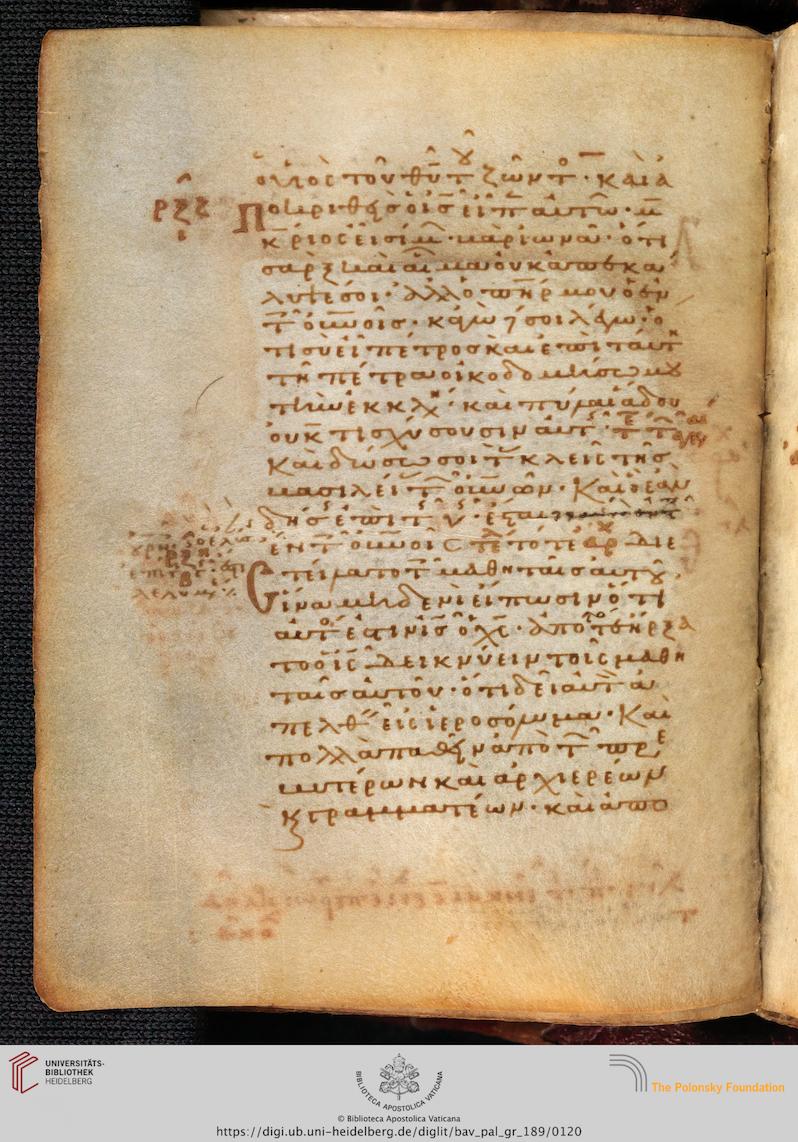 ὁ υἱὸς τοῦ θυ τοῦ ζῶντος· καὶ ἀ
ποκριθεὶς ὁ ις εἶπεν αὐτῶ· μ
κάριος εἶ σίμων· βαριωνᾶ· ὅτι
σὰρξ καὶ αἷμα οὐκ ἀπεκά
λυψέ σοι· ἀλλ ὁ πηρ μου ὁ ἐν
τοῖς οὐνοις· κἀγὼ δὲ σοι λέγω· ὅ
τι σὺ εἶ πέτρος καὶ ἐπὶ ταύτη
τῆ πέτρα οἰκοδομήσω μου
τὴν ἐκκλη· καὶ πύλαι ἅδου
οὐ κατισχύσουσιν αὐτῆς·
Καὶ δώσω σοι τὰς κλεῖς τῆς
βασιλεί τῶν οὐνων· Καὶ ὃ ἐὰν
δήσης ἐπὶ τῆς γῆς· ἔσται
ἐν τοῖς οὐνοις τότε διε
στείλατο τοῖς μαθηταῖς αὐτοῦ
ἵνα μηδενὶ εἴπωσιν ὅτι
αὐτός ἐστιν ις ὁ χς· ἀπὸ τότε ἤρξα
το ὁ ις δεικνύειν τοῖς μαθη
ταῖς αὐτοῦ· ὅτι δεῖ αὐτὸν ἀ
πελθεῖν εἰς ἱεροσόλυμα· Καὶ
πολλὰ παθεῖν ἀπὸ τῶν πρε
σβυτέρων καὶ ἀρχιερέων
κ γραμματέων· καὶ ἀπο
UNIVERSITÄTS-
BIBLIOTHEK
HEIDELBERG
BIBLIOTECA APOSTOLICA VATICANA
The Polonsky Foundation
© Biblioteca Apostolica Vaticana
https://digi.ub.uni-heidelberg.de/diglit/bav_pal_gr_189/0120